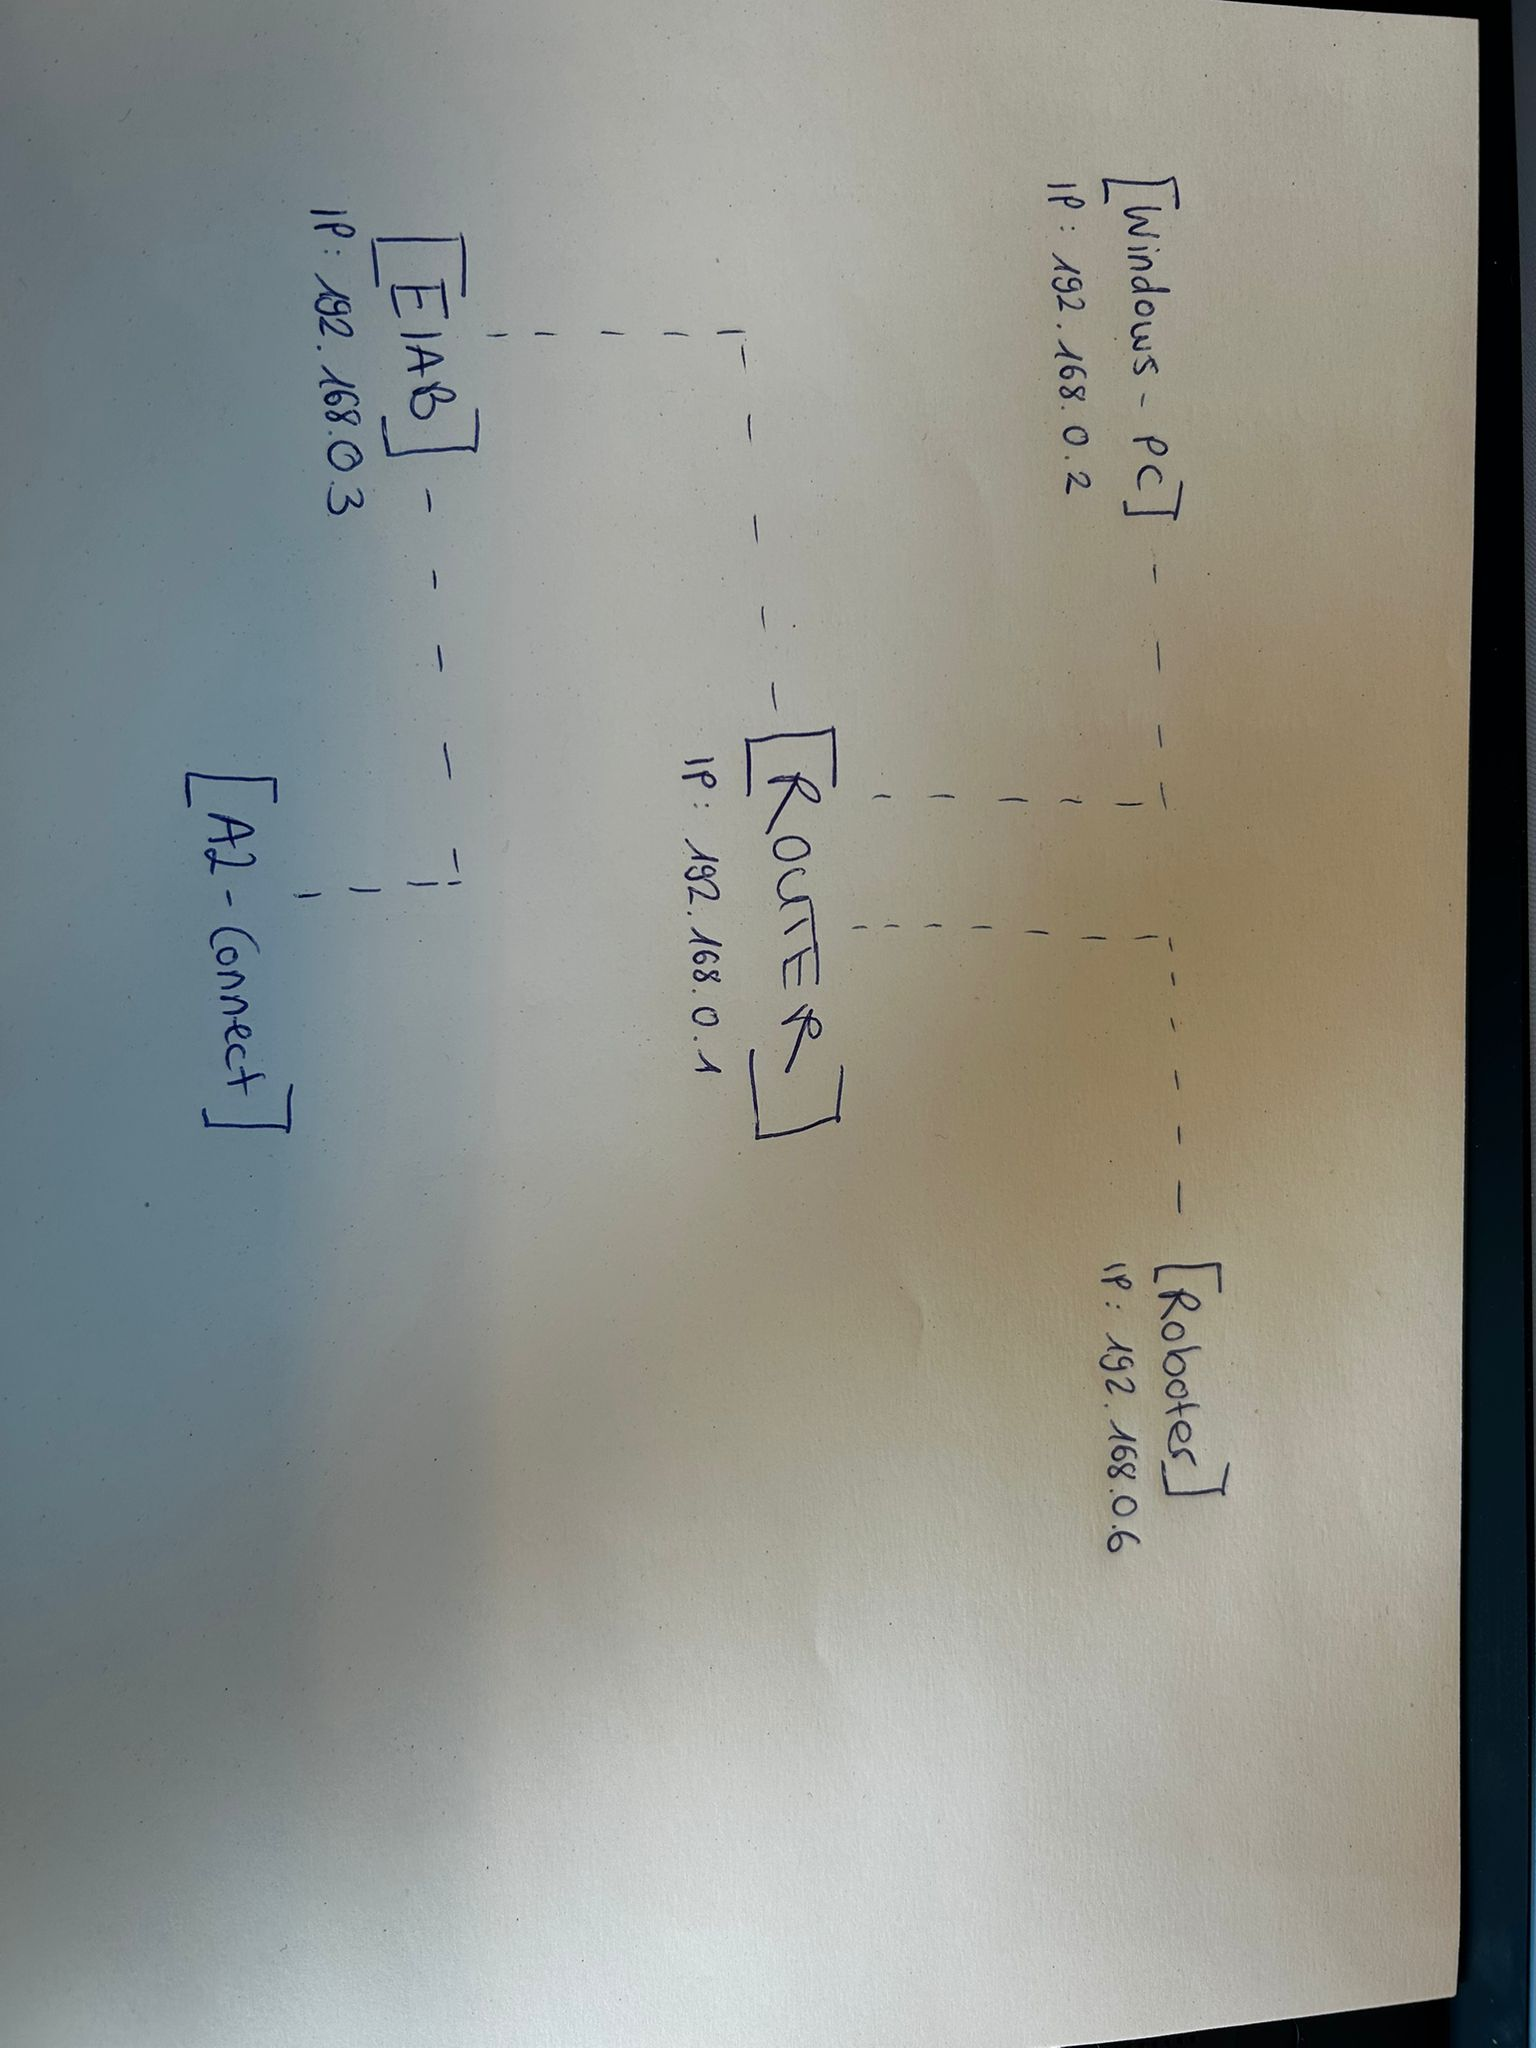 [Windows - PC]
IP: 192.168.0.2
[Roboter]
IP: 192.168.0.6
[ROUTER]
IP: 192.168.0.1
[EIAB]
IP: 192.168.0.3
[A2-Connect]